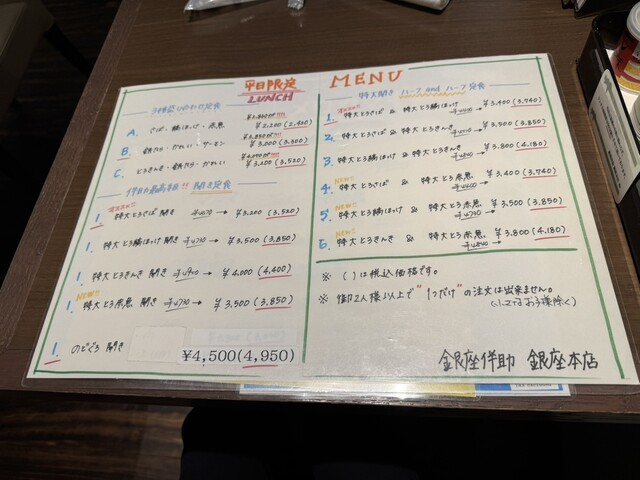 平日限定
LUNCH
3種盛り合わせ定食
A. さば・縞ほっけ・赤魚 ¥2,200 (2,420)
B. 銀だら・かれい・サーモン ¥3,000 (3,300)
C. とろきんき・銀だら・かれい ¥3,200 (3,520)
開き定食
1. 特大とろさば開き → ¥3,200 (3,520)
1. 特大とろ縞ほっけ開き → ¥3,500 (3,850)
1. 特大とろきんき開き → ¥4,000 (4,400)
NEW!!
1. 特大とろ赤魚開き → ¥3,500 (3,850)
1. のどぐろ開き
¥4,500(4,950)
MENU
特大開き ハーフ and ハーフ定食
1. 特大とろさば & 特大とろ縞ほっけ → ¥3,400 (3,740)
2. 特大とろさば & 特大とろきんき → ¥3,500 (3,850)
3. 特大とろ縞ほっけ & 特大とろきんき → ¥3,800 (4,180)
NEW!!
4. 特大とろさば & 特大とろ赤魚 → ¥3,400 (3,740)
NEW!!
5. 特大とろ縞ほっけ & 特大とろ赤魚 → ¥3,500 (3,850)
NEW!!
6. 特大とろきんき & 特大とろ赤魚 → ¥3,800 (4,180)
※ ( )は税込価格です。
※ 御2人様以上で"1つだけ"の注文は出来ません。
銀座伴助 銀座本店